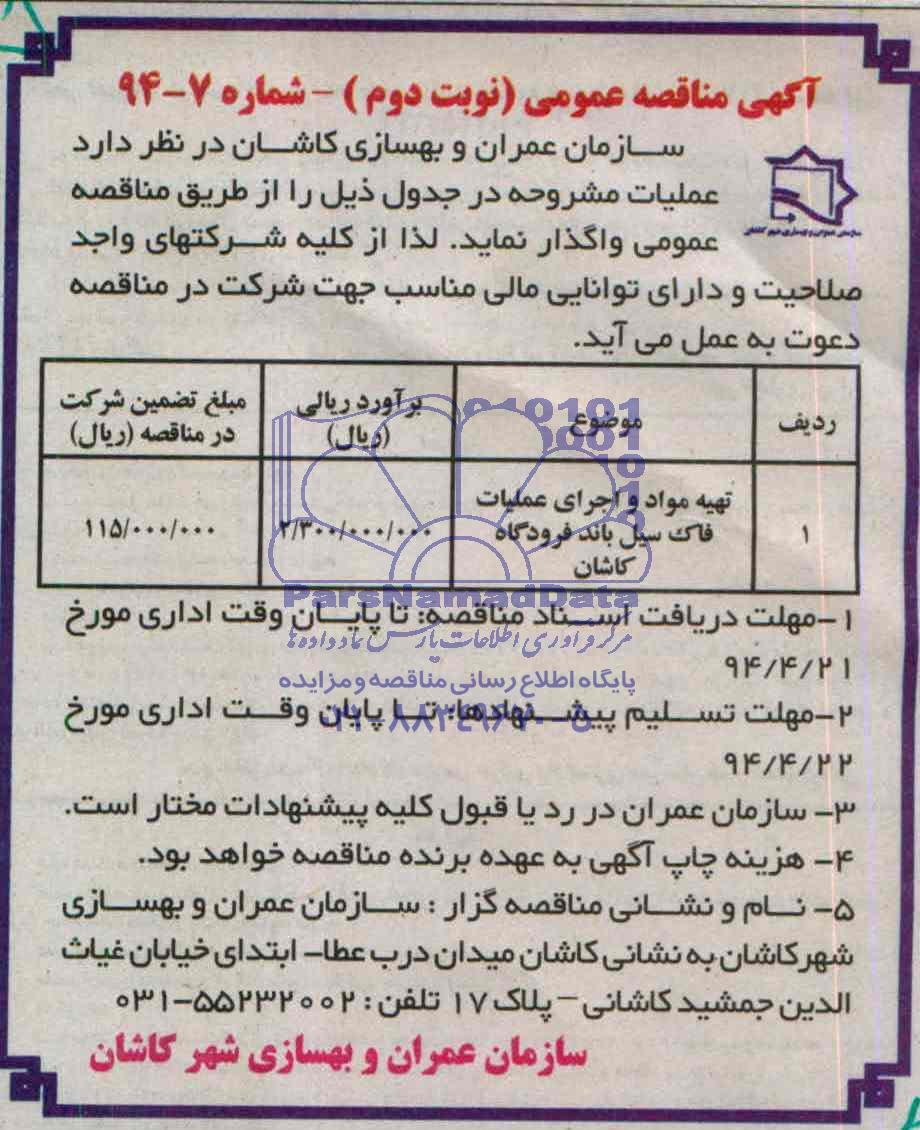 آگهی مناقصه عمومی (نوبت دوم) - شماره ۷-۹۴
سازمان عمران و بهسازی کاشان در نظر دارد
عملیات مشروحه در جدول ذیل را از طریق مناقصه
عمومی واگذار نماید. لذا از کلیه شرکتهای واجد
سازمان عمران و بهسازی شهر کاشان
صلاحیت و دارای توانایی مالی مناسب جهت شرکت در مناقصه
دعوت به عمل می آید.
ردیف موضوع برآورد ریالی (ریال) مبلغ تضمین شرکت در مناقصه (ریال)
۱ تهیه مواد و اجرای عملیات ۲/۳۰۰/۰۰۰/۰۰۰ ۱۱۵/۰۰۰/۰۰۰
فاک سیل باند فرودگاه
کاشان
ParsNamadData
۱-مهلت دریافت اسناد مناقصه: تا پایان وقت اداری مورخ
مرکز فرآوری اطلاعات پارس نماد داده ها
۹۴/۴/۲۱
پایگاه اطلاع رسانی مناقصه و مزایده
۲-مهلت تسلیم پیشنهادها: تا پایان وقت اداری مورخ
۹۴/۴/۲۲
۳- سازمان عمران در رد یا قبول کلیه پیشنهادات مختار است.
۴- هزینه چاپ آگهی به عهده برنده مناقصه خواهد بود.
۵- نام و نشانی مناقصه گزار : سازمان عمران و بهسازی
شهرکاشان به نشانی کاشان میدان درب عطا- ابتدای خیابان غیاث
الدین جمشید کاشانی - پلاک ۱۷ تلفن: ۵۵۲۳۲۰۰۲-۰۳۱
سازمان عمران و بهسازی شهر کاشان